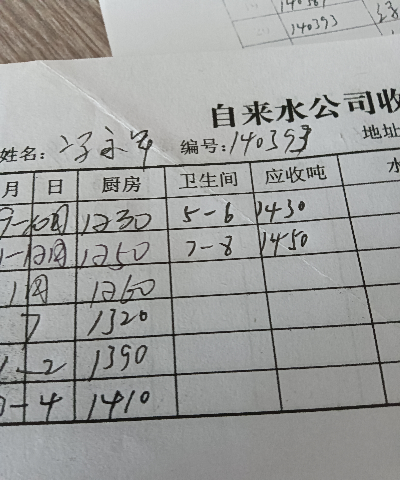 140393
自来水公司收
姓名: 编号:140393 地址
月 日 厨房 卫生间 应收吨 水
9-10月 1230 5-6 1430
1-12月 1250 7-8 1450
1月 1260
7 1320
1-2 1390
3-4 1410